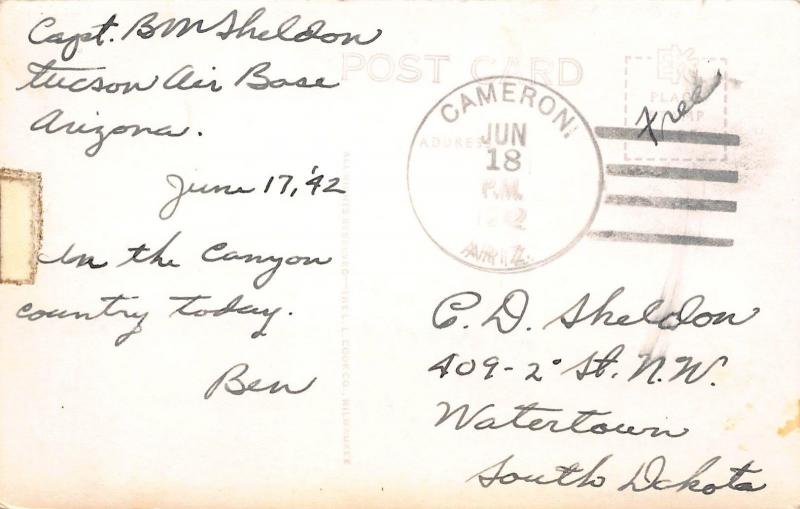 Capt. B M Sheldon
Tucson Air Base
Arizona.
June 17, '42
In the Canyon
country today.
Ben
POST CARD
ADDRESS
PLACE
Free
CAMERON
JUN
18
P.M.
1942
ARIZ.
C. D. Sheldon
409 - 2° St. N.W.
Watertown
South Dakota
L. L. COOK CO., MILWAUKEE